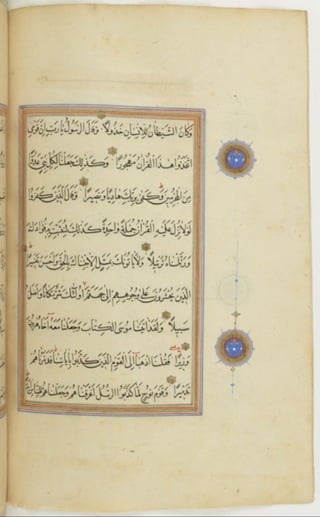 وَكَانَ الشَّيْطَانُ لِلْإِنْسَانِ خَذُولًا وَقَالَ الرَّسُولُ يَا رَبِّ إِنَّ قَوْمِي
اتَّخَذُوا هَذَا الْقُرْآنَ مَهْجُورًا وَكَذَلِكَ جَعَلْنَا لِكُلِّ نَبِيٍّ عَدُوًّا
مِنَ الْمُجْرِمِينَ وَكَفَى بِرَبِّكَ هَادِيًا وَنَصِيرًا وَقَالَ الَّذِينَ كَفَرُوا
لَوْلَا نُزِّلَ عَلَيْهِ الْقُرْآنُ جُمْلَةً وَاحِدَةً كَذَلِكَ لِنُثَبِّتَ بِهِ فُؤَادَكَ
وَرَتَّلْنَاهُ تَرْتِيلًا وَلَا يَأْتُونَكَ بِمَثَلٍ إِلَّا جِئْنَاكَ بِالْحَقِّ وَأَحْسَنَ تَفْسِيرًا
الَّذِينَ يُحْشَرُونَ عَلَى وُجُوهِهِمْ إِلَى جَهَنَّمَ أُولَئِكَ شَرٌّ مَكَانًا وَأَضَلُّ
سَبِيلًا وَلَقَدْ آتَيْنَا مُوسَى الْكِتَابَ وَجَعَلْنَا مَعَهُ أَخَاهُ هَارُونَ
وَزِيرًا فَقُلْنَا اذْهَبَا إِلَى الْقَوْمِ الَّذِينَ كَذَّبُوا بِآيَاتِنَا فَدَمَّرْنَاهُمْ
تَدْمِيرًا وَقَوْمَ نُوحٍ لَمَّا كَذَّبُوا الرُّسُلَ أَغْرَقْنَاهُمْ وَجَعَلْنَاهُمْ لِلنَّاسِ